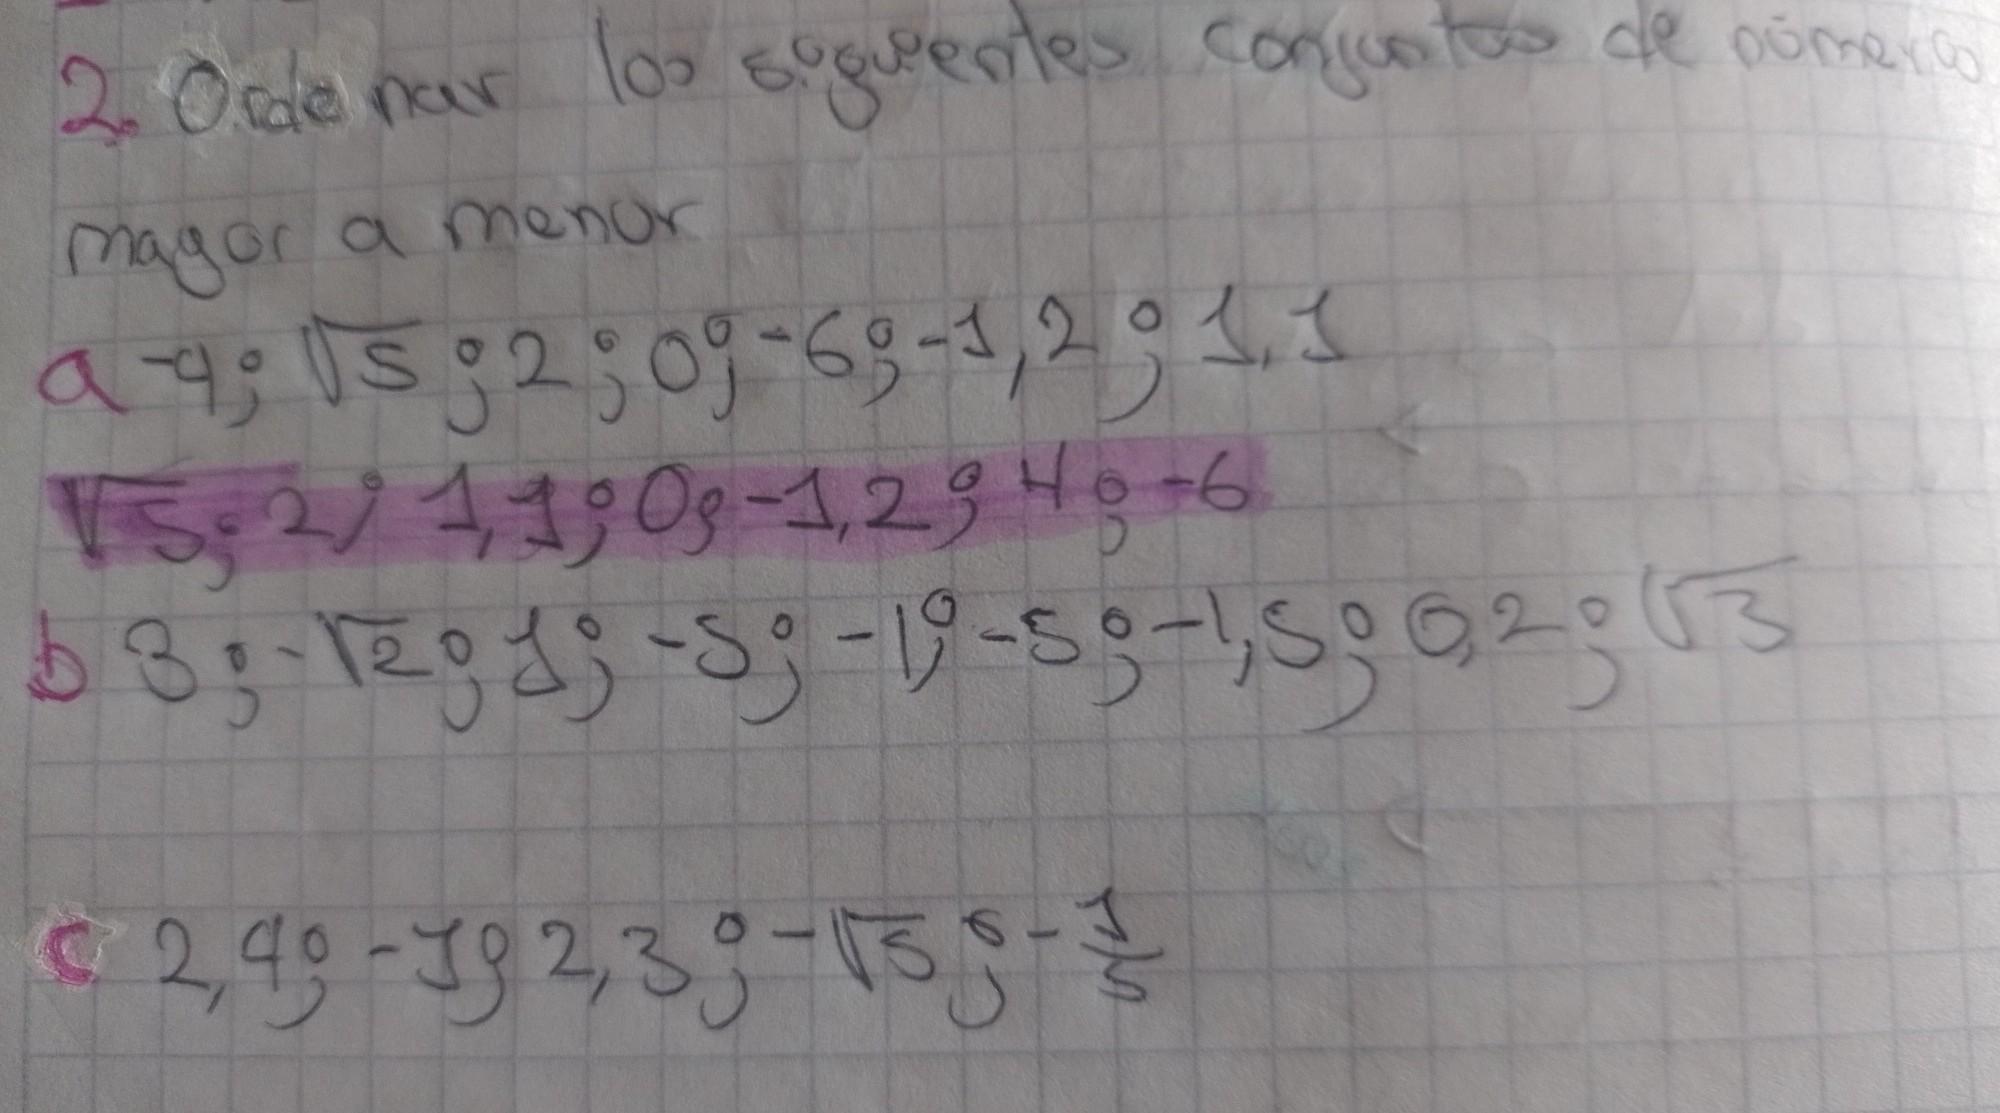 2. Ordenar los siguientes conjuntos de números
mayor a menor
a -4; √5; 2; 0; -6; -1,2; 1,1
√5; 2; 1,1; 0; -1,2; 4; -6
b 3; -√2; 1; -5; -1; -5; -1,5; 0,2; √3
c 2,4; -1; 2,3; -√5; -1/5